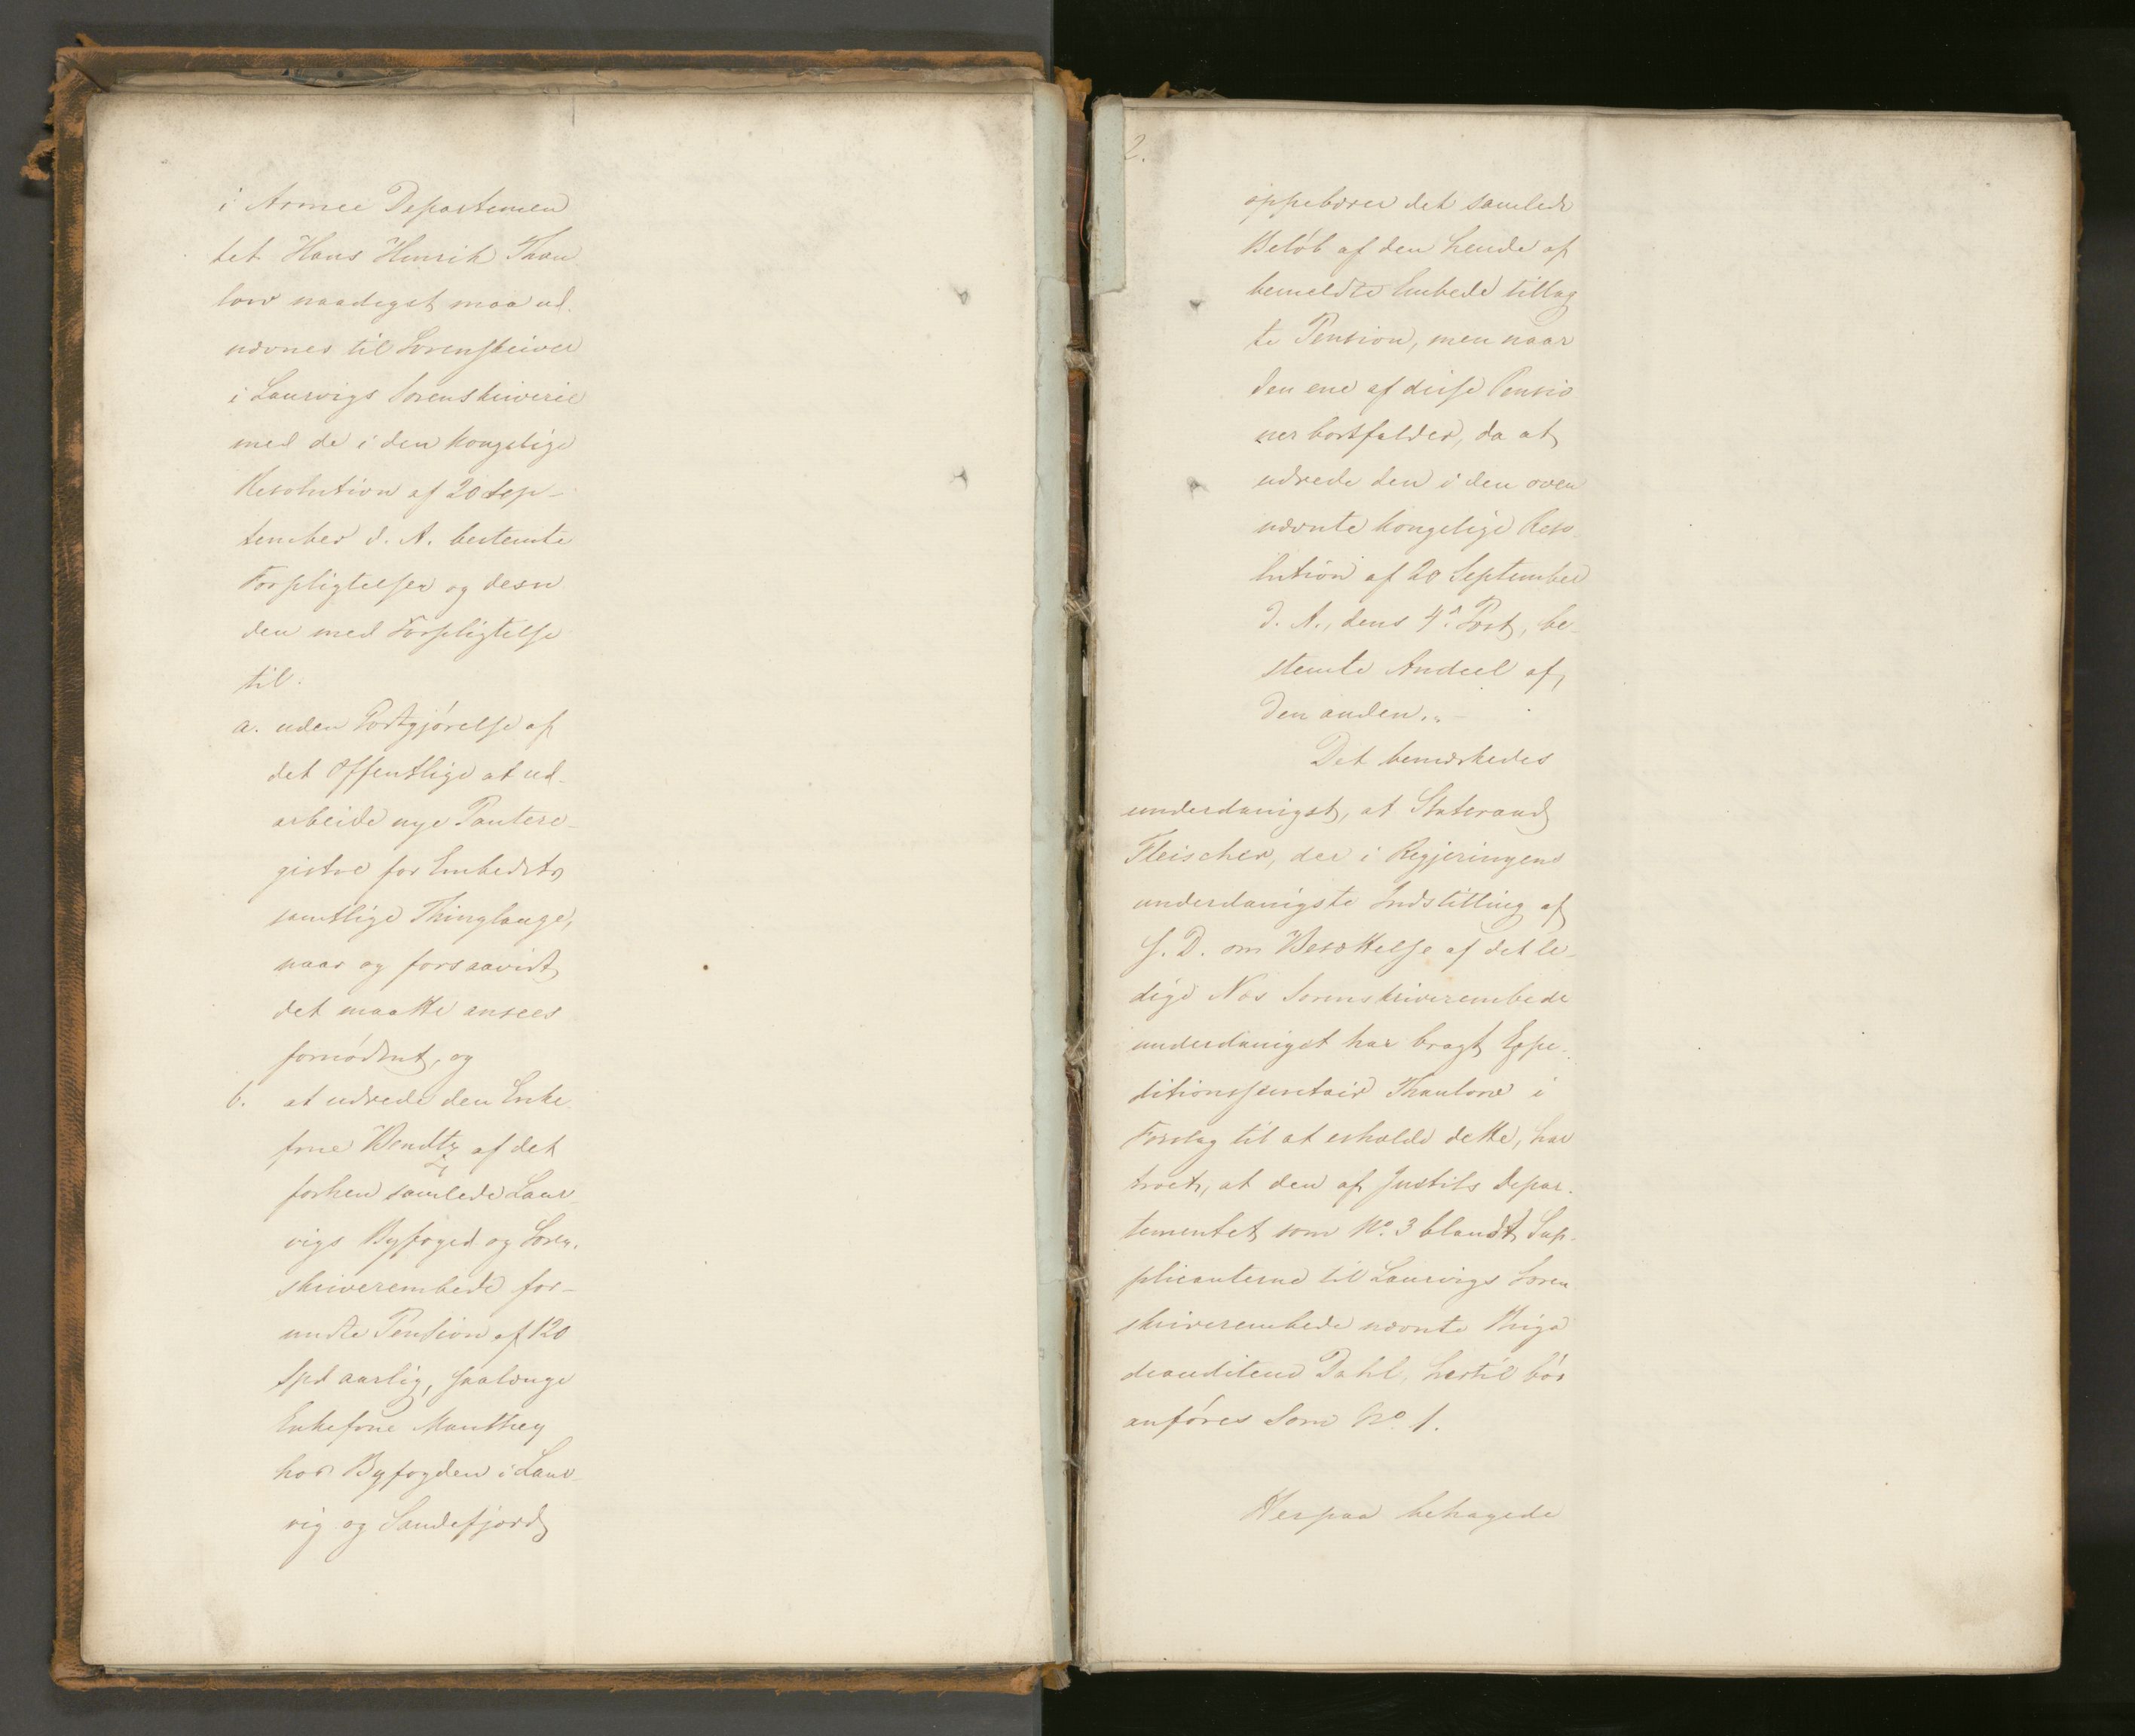 i Armee Departemen
tet Hans Henrik Thau
low naadigst maa ud-
nævnes til Sorenskriver
i Laurvigs Sorenskriverie
med de i den kongelige
Resolution af 20 Sep-
tember d. A. bestemte
Forpligtelser og desu
den med Forpligtelse
til.
a. uden Godtgjörelse af
det Offentlige at ud-
arbeide nye Pantere-
gistre for Embedets
samtlige Thinglauge,
naar og forsaavidt
det maatte ansees
fornödent, og
b. at udrede den Enke
frue Wendtz af det
forhen samlede Laur-
vigs Byfoged og Soren-
skriverembede for-
undte Pension af 120
Spd aarlig, saalænge
Enkefrue Manthey
hos Byfogden i Laur-
vig og Sandefjord
2.
oppebærer det samlede
Belöb af den hende af
bemeldte Embede tillag
te Pension, men naar
den ene af disse Pensio
ner bortfalder, da at
udrede den i den oven
nævnte kongelige Reso-
lution af 20 September
d. A., dens 4de Post, be-
stemte Andeel af
den anden."
Det bemærkedes
underdanigst, at Statsraad
Fleischer, der i Regjeringens
underdanigste Indstilling af
S. D. om Besættelse af det le-
dige Næs Sorenskriverembede
underdanigst har bragt Expe-
ditionssecretair Thaulow i
Forslag til at erholde dette, har
troet, at den af Justits Depar-
tementet som No. 3 blandt Sup-
plicanterne til Laurvigs Soren
skriverembede nævnte Briga
deauditeur Dahl, hertil bör
anföres som No 1.
Herpaa behagede